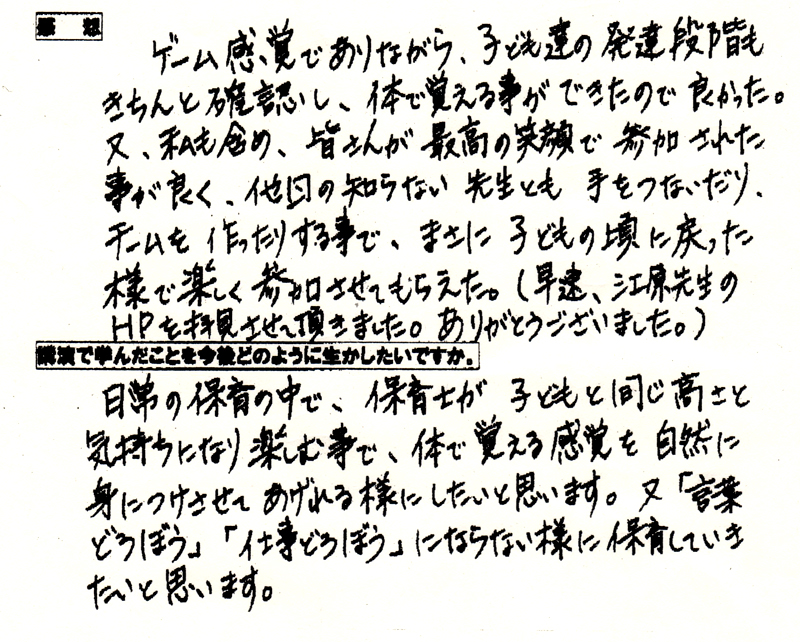 感 想
ゲーム感覚でありながら、子ども達の発達段階も
きちんと確認し、体で覚える事ができたので良かった。
又、私も含め、皆さんが最高の笑顔で参加された
事が良く、他園の知らない先生とも手をつないだり、
チームを作ったりする事で、まさに子どもの頃に戻った
様で楽しく参加させてもらえた。(早速、江原先生の
HPを拝見させて頂きました。ありがとうございました。)
講演で学んだことを今後どのように生かしたいですか。
日常の保育の中で、保育士が子どもと同じ高さと
気持ちになり楽しむ事で、体で覚える感覚を自然に
身につけさせてあげれる様にしたいと思います。又「言葉
どろぼう」「仕事どろぼう」にならない様に保育していき
たいと思います。